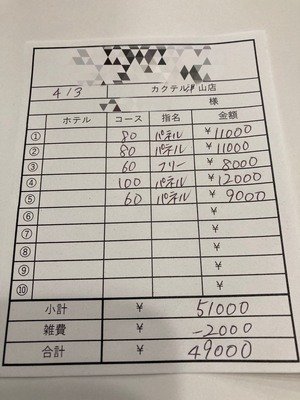 4/3 カクテル津山店
様
ホテル コース 指名 金額
① 80 パネル ¥11000
② 80 パネル ¥11000
③ 60 フリー ¥8000
④ 100 パネル ¥12000
⑤ 60 パネル ¥9000
⑥ ¥
⑦ ¥
⑧ ¥
⑨ ¥
⑩ ¥
小計 ¥ 51000
雑費 ¥ -2000
合計 ¥ 49000